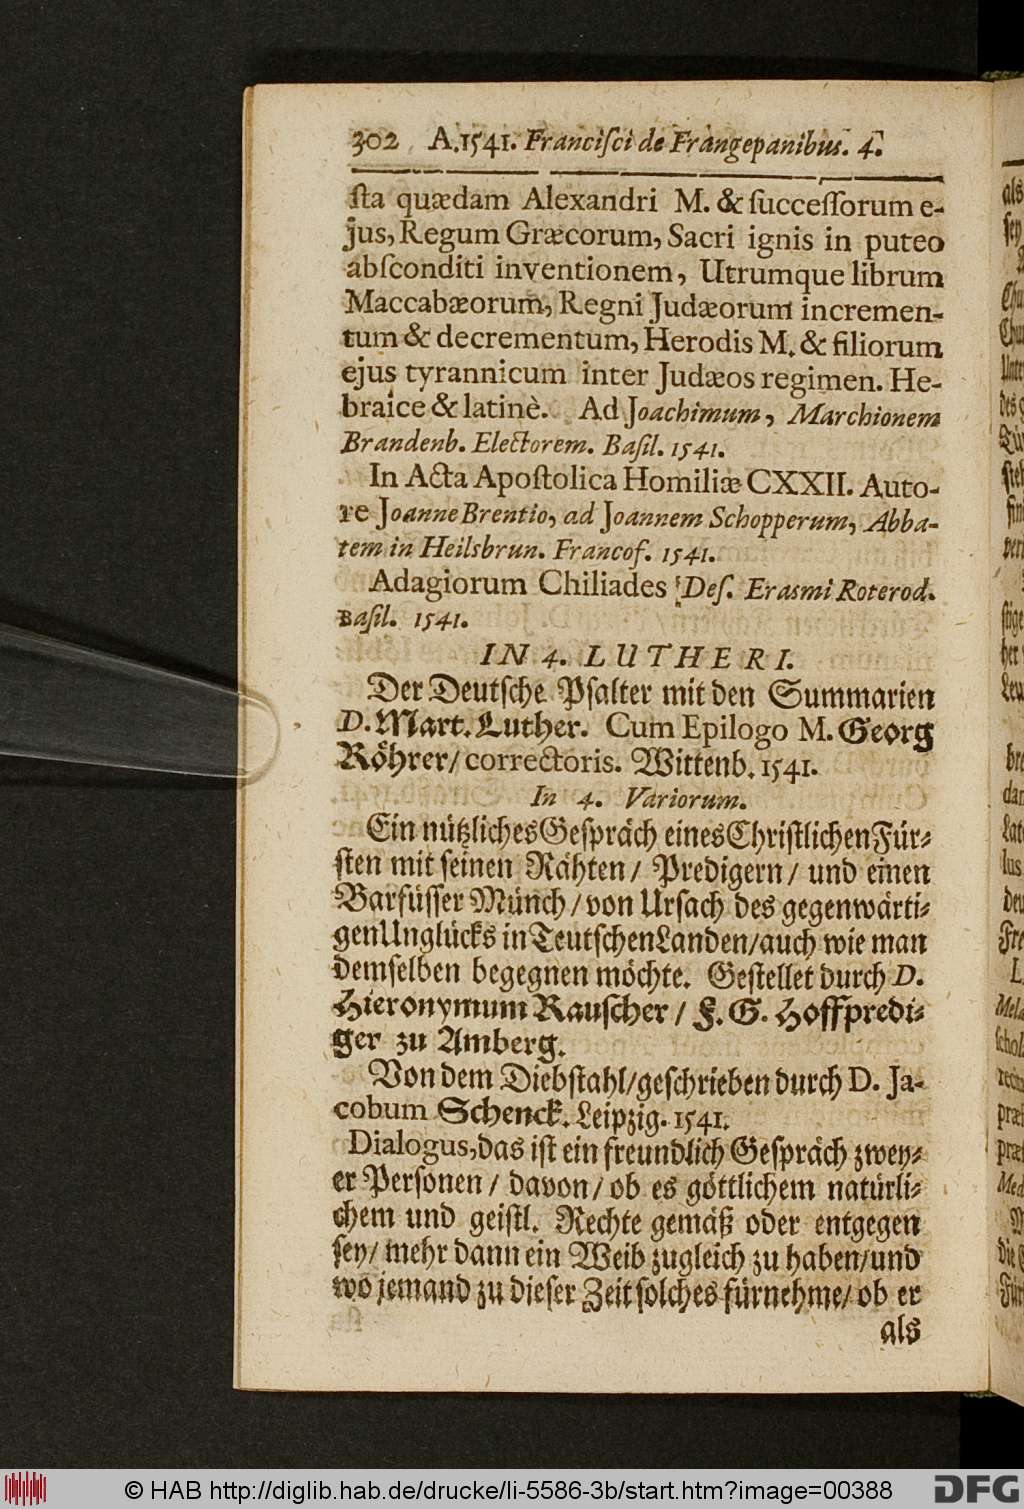 302 A.1541. Franciſci de Frangepanibus. 4.
ſta quædam Alexandri M. & ſucceſſorum e-
jus, Regum Græcorum, Sacri ignis in puteo
abſconditi inventionem, Utrumque librum
Maccabæorum, Regni Judæorum incremen-
tum & decrementum, Herodis M. & filiorum
ejus tyrannicum inter Judæos regimen. He-
braice & latinè. Ad Joachimum, Marchionem
Brandenb. Electorem. Baſil. 1541.
In Acta Apoſtolica Homiliæ CXXII. Auto-
re Joanne Brentio, ad Joannem Schopperum, Abba-
tem in Heilsbrun. Francof. 1541.
Adagiorum Chiliades Deſ. Erasmi Roterod.
Baſil. 1541.
IN 4. LUTHERI.
Der Deutſche Pſalter mit den Summarien
D. Mart. Luther. Cum Epilogo M. Georg
Röhrer/ correctoris. Wittenb. 1541.
In 4. Variorum.
Ein nützliches Geſpräch eines Chriſtlichen Für-
ſten mit ſeinen Rähten/ Predigern/ und einen
Barfüſſer Münch/ von Urſach des gegenwärti-
gen Unglücks in Teutſchen Landen/ auch wie man
demſelben begegnen möchte. Geſtellet durch D.
Hieronymum Rauſcher/ F. G. Hoffpredi-
ger zu Amberg.
Von dem Diebſtahl/ geſchrieben durch D. Ja-
cobum Schenck. Leipzig. 1541.
Dialogus, das iſt ein freundlich Geſpräch zwey-
er Perſonen/ davon/ ob es göttlichem natürli-
chem und geiſtl. Rechte gemäß oder entgegen
ſey/ mehr dann ein Weib zugleich zu haben/ und
wo jemand zu dieſer Zeit ſolches fürnehme/ ob er
als
© HAB http://diglib.hab.de/drucke/li-5586-3b/start.htm?image=00388
DFG